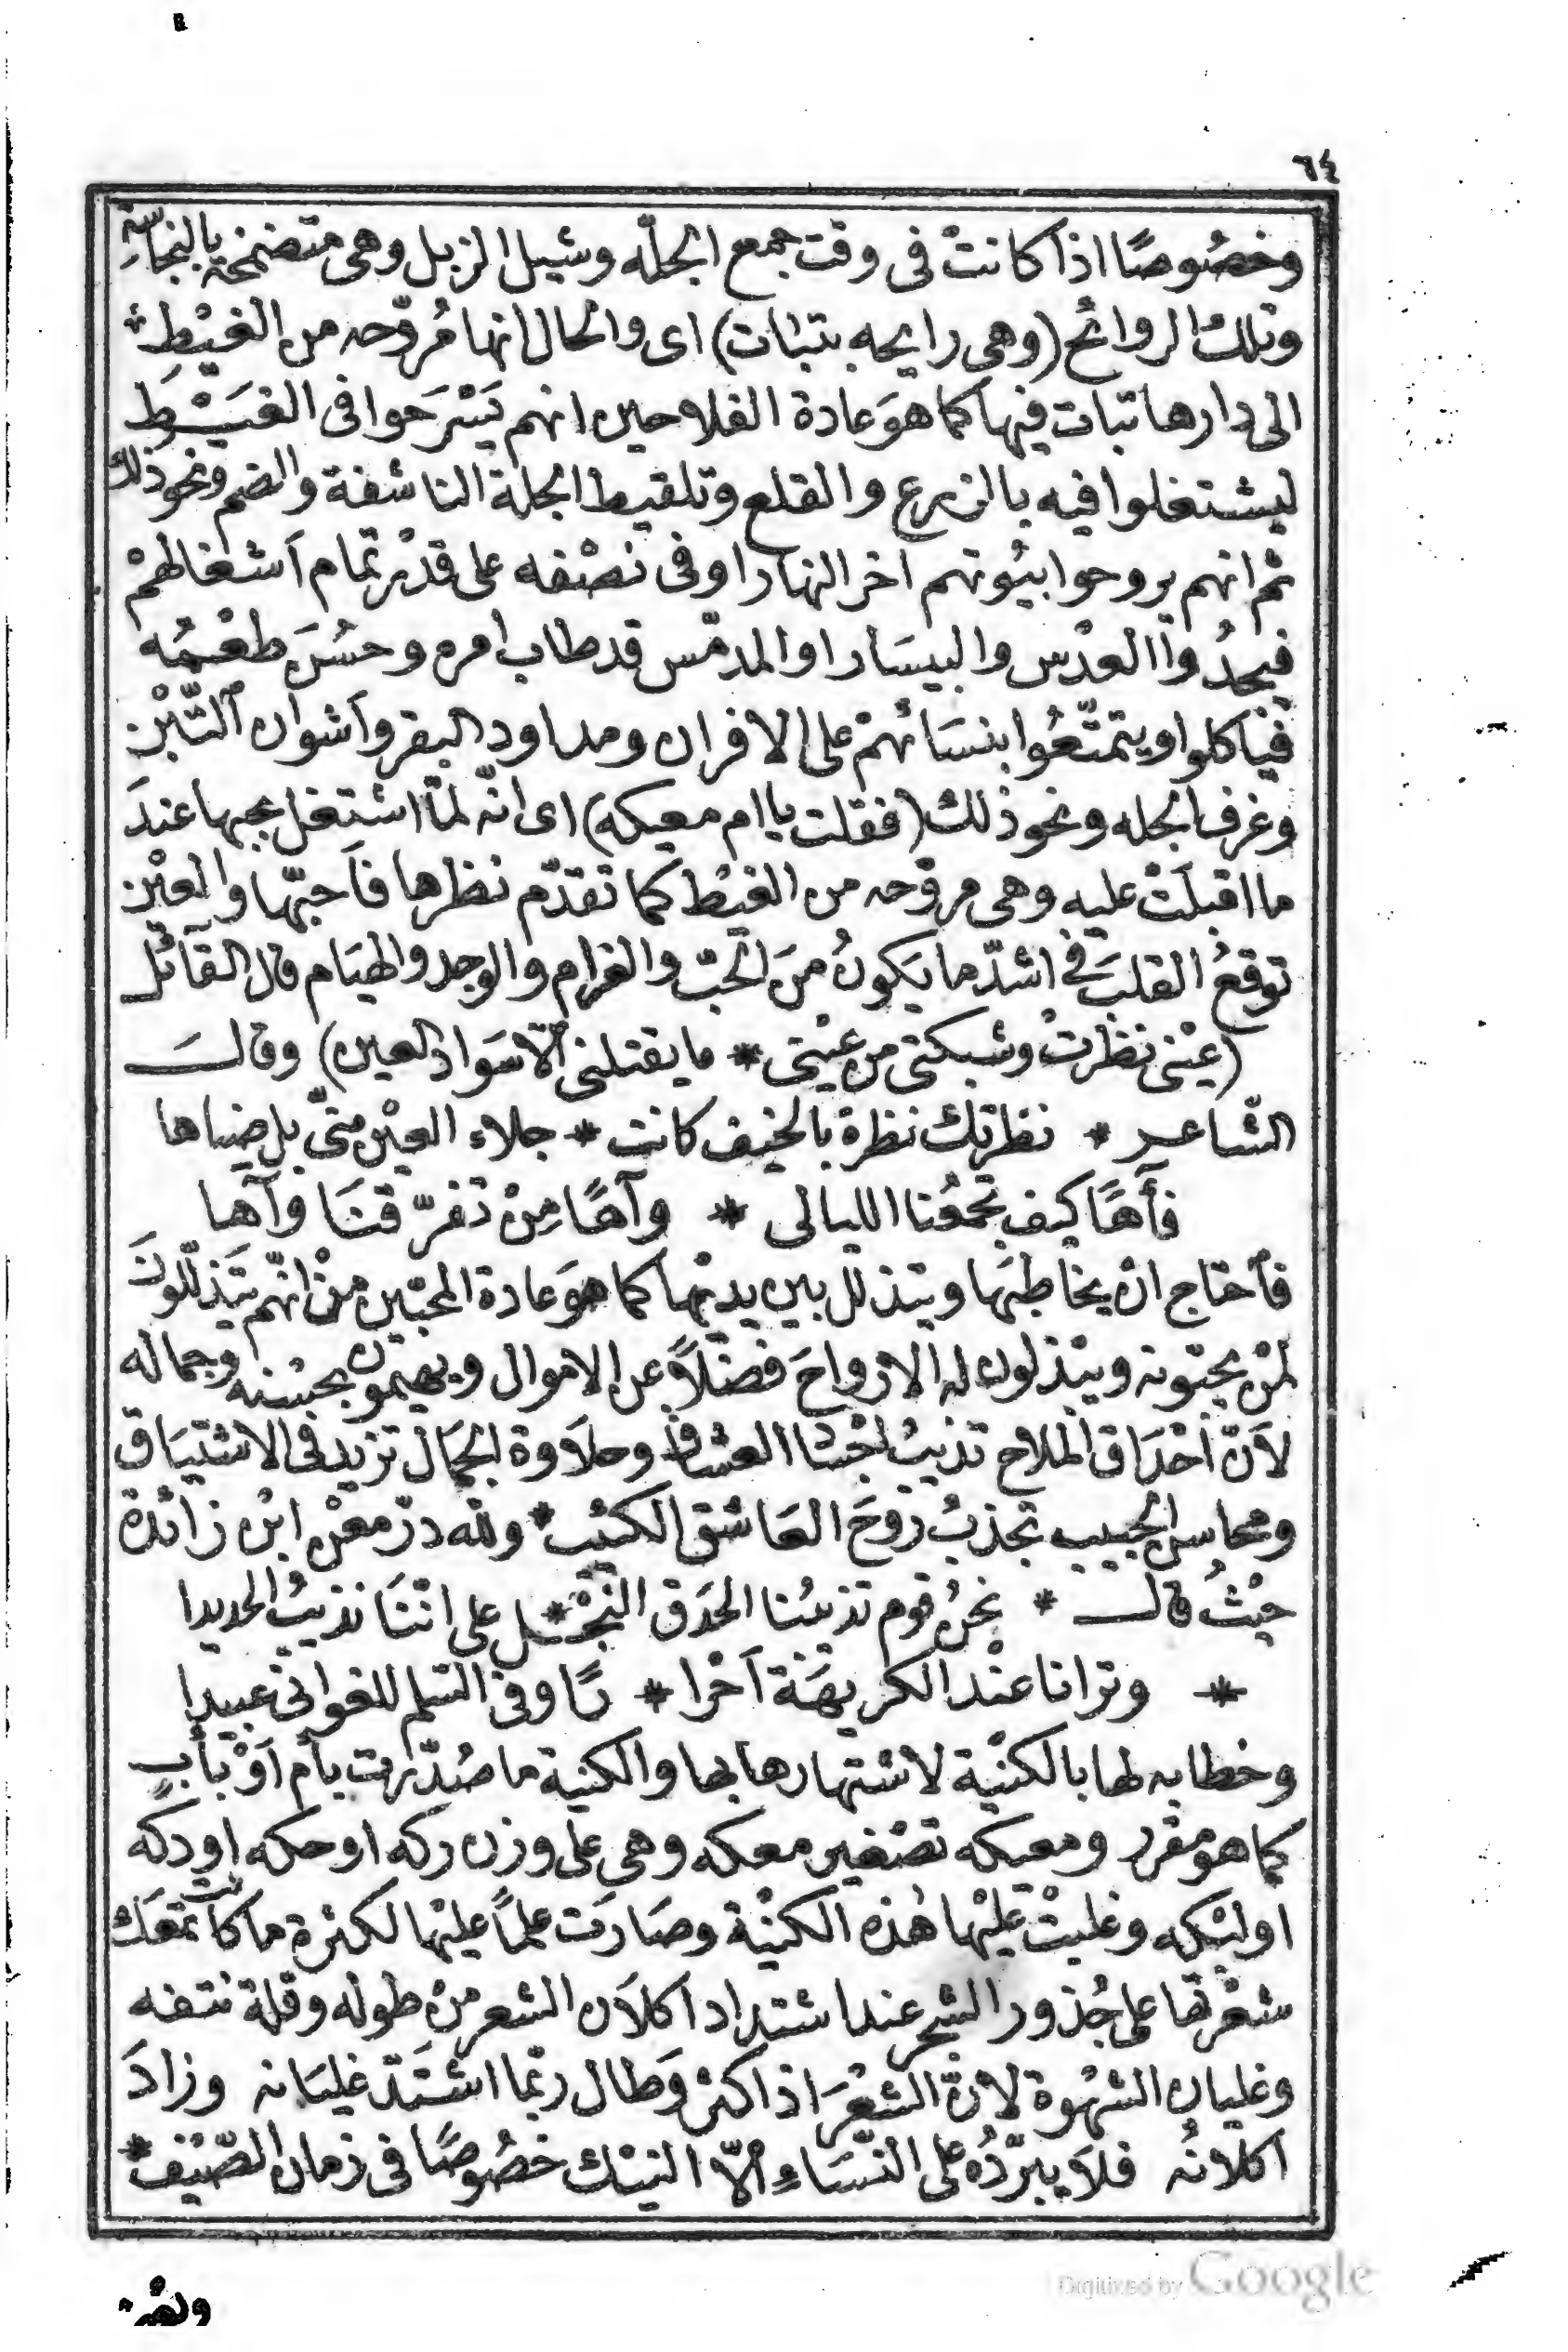 ٦٤
وخصُوصًا اذا كانتْ فى وقت جمع الجلّه وشيل الزبل وهى متضمخة بالنجاسَةِ
وتلك الروائح (وهى رايحه بتبات) اى والحال انها مُروّحه من الغيْطِ
الى دارها تبات فيها كما هوَ عادة الفلاحين انهم يَسْرَحوا فى الغَيْطِ
ليشتغلوا فيه بالزرع والقلع وتلقيط الجلة الناشفة والضم ونحو ذلك
ثم انهم يروحوا بيُوتهم اخر النهار او فى نصْفه على قدْر تمام اَشغالهمْ
فيجدُوا العدْس والبيسَار او المدمّس قد طاب امره وحسُنَ طعْمُه
فيَاكلوا ويتمتّعُوا بنسَائهمْ على الافران ومداود البقر وآشوان التّبْن
وغرف الجله ونحو ذلك (فقلت يا ام معيكه) اى انّه لمّا اشتغل بحبها عندَ
ما اقبلَتْ عليه وهى مروّحه من الغيْط كما تقدّم نظرها فاَحبّها والعيْن
توقعُ القلبَ فى اشدّ ما يَكونُ منَ الحبّ والغرام والوجد والهيَام قال القآئل
(عيْنى نظرتْ وشبكتى من عيْنى * ما يقتلنى اَلّا سَواد العين) وقالَ
الشّاعر * نظرتك نظرة بالخيف كانت * جلاء العيْن منّى بل ضياها
فأَهًا كيف تجمعُنا الليالى * وآهًا مِنْ تفرّقنَا وآها
فاَحتاج انْ يخاطبَها ويتذلل بين يديْها كما هوَ عادة المحبّين منْ انّهم يَتذلّلونَ
لمنْ يحبّونه ويبْذلون له الارْواحَ فضْلاً عن الاموال ويهيمُون بحسْنه وجماله
لاَنّ اَحْدَاق الملاح تذيبُ اجْسَاد العشاق وحلاَوة الجمَال تزيد فى الاشتيَاق
ومحاسن الحبيب تجذبُ رُوحَ العَاشق الكئيب * ولله درّ معْن ابْن زائدة
حيْثُ قال * نحنُ قوم تذيبُنا الحدَق النّجْل * على انّنَا نذيبُ الحديدا
* وترانا عنْد الكريهَة اَحْرا * رًا وفى السّلم للغوانى عبيدا
وخطابه لها بالكنْيَة لاشتهارها بها والكنية ما صُدّرت باُم اَوْ باَبٍ
كما هو مقرر ومعيكه تصْغير معكه وهى على وزن ركه او حكه او دكه
او لبْكه وغلبتْ عليْها هٰذه الكنيْة وصَارَت علماً عليْها لكثرة ما كانت تمعَك
شعْرتها على جُذور الشجر عند اشتداد اكلاَن الشعر منْ طوله وقلة نتفه
وغليان الشهْوة لاَنّ الشعْرَ اذا كثر وَطال ربّما اشتَدّ غليَانه وزادَ
اكلانُه فلاَ يبرّدُه على النّسَاءِ اِلّا النيْك خصُوصًا فى زمان الصّيْف *